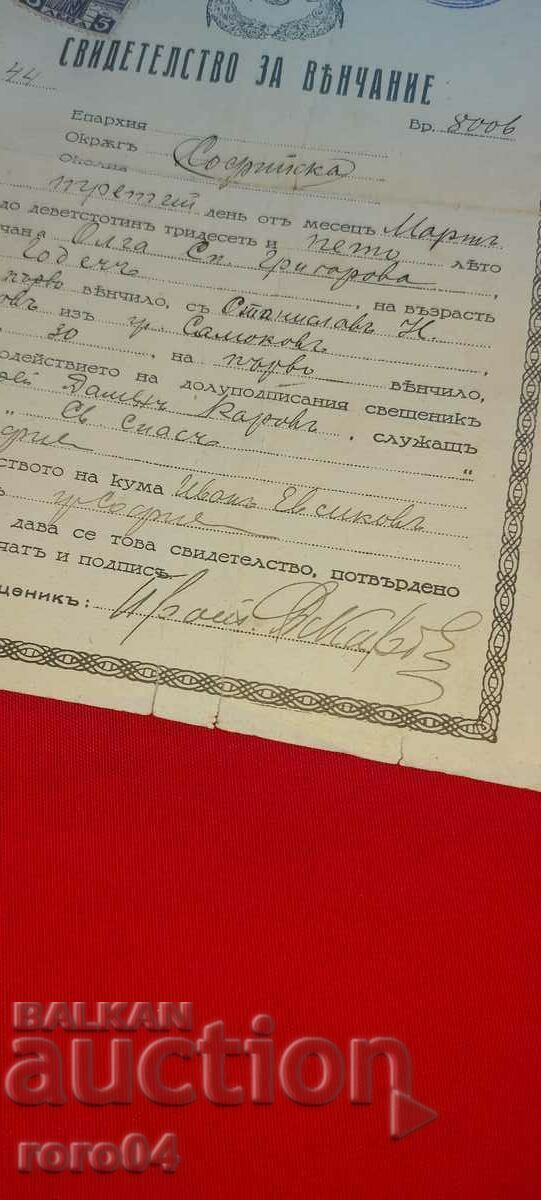 5 ЛЕВА 5
СВИДЕТЕЛСТВО ЗА ВѢНЧАНИЕ
44
Вр. 8006
Епархия
Окрѫгъ Софийска
Околия
третий день отъ месецъ Мартъ
до деветстотин тридесетъ и пето лѣто
чана Олга Сп. Григорова,
Годечъ, на възрасть
първо вѣнчило, съ Станиславъ Н.
овъ изъ гр. Самоковъ,
30, на първо вѣнчило,
одействието на долуподписания свещеникъ
Дамянъ Каровъ, служащъ
" Св. Спасъ "
офие
ството на кума Иванъ Евтимовъ
ъ гр София
дава се това свидетелство, потвърдено
чатъ и подпись.
щеникъ:
BALKAN
auction
roro04